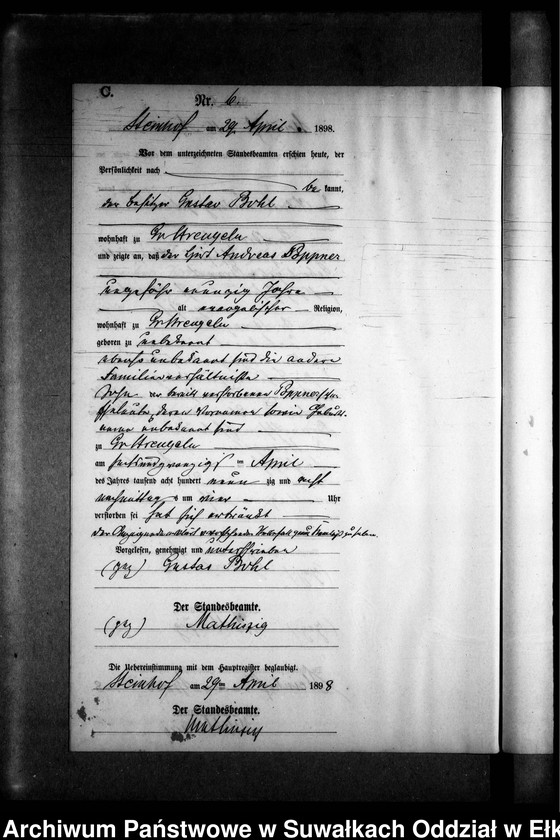 C.
Nr. 6.
Steinhof am 29. April 1898.
Vor dem unterzeichneten Standesbeamten erschien heute, der
Persönlichkeit nach
be kannt,
der Besitzer Gustav Bohl
wohnhaft zu Gr Strengeln
und zeigte an, daß der Hirt Andreas Poppner
ungefähr neunzig Jahre
alt evangelischer Religion,
wohnhaft zu Gr Strengeln
geboren zu unbekannt
ebenso unbekannt sind die andere
Familienverhältnisse
Sohn der bereits verstorbenen Poppner'schen
Eheleute, deren Vornamen sowie Geburts
name unbekannt sind
zu Gr Strengeln
am sechsundzwanzigsten April
des Jahres tausend acht hundert neun zig und acht
nachmittags um vier Uhr
verstorben sei hat sich ertränkt
Der Anzeigende erklärt vorstehenden
Vorgelesen, genehmigt und unterschrieben
(gez) Gustav Bohl
Der Standesbeamte.
(gez) Mathiszig
Die Uebereinstimmung mit dem Hauptregister beglaubigt.
Steinhof am 29ten April 1898
Der Standesbeamte.
Mathiszig
Archiwum Państwowe w Suwałkach Oddział w Ełk